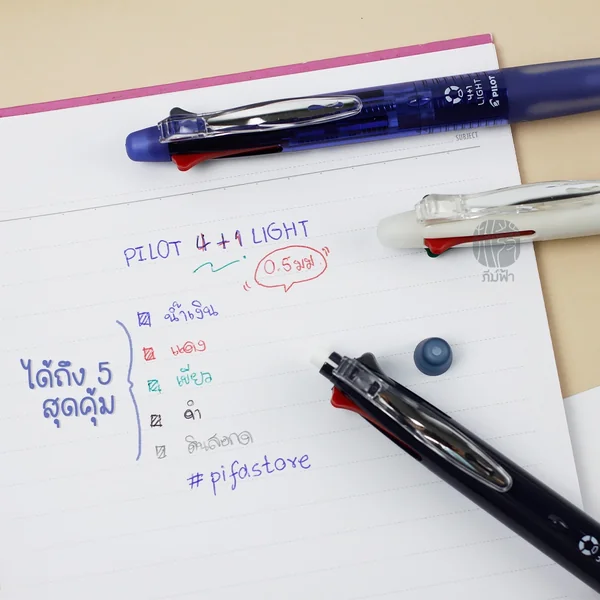 4+1
LIGHT
PILOT
SUBJECT
PILOT 4+1 LIGHT
"0.5 มม"
ภีม์ฟ้า
น้ำเงิน
แดง
เขียว
ดำ
ดินสอกด
ได้ถึง 5
สุดคุ้ม
#pifastore